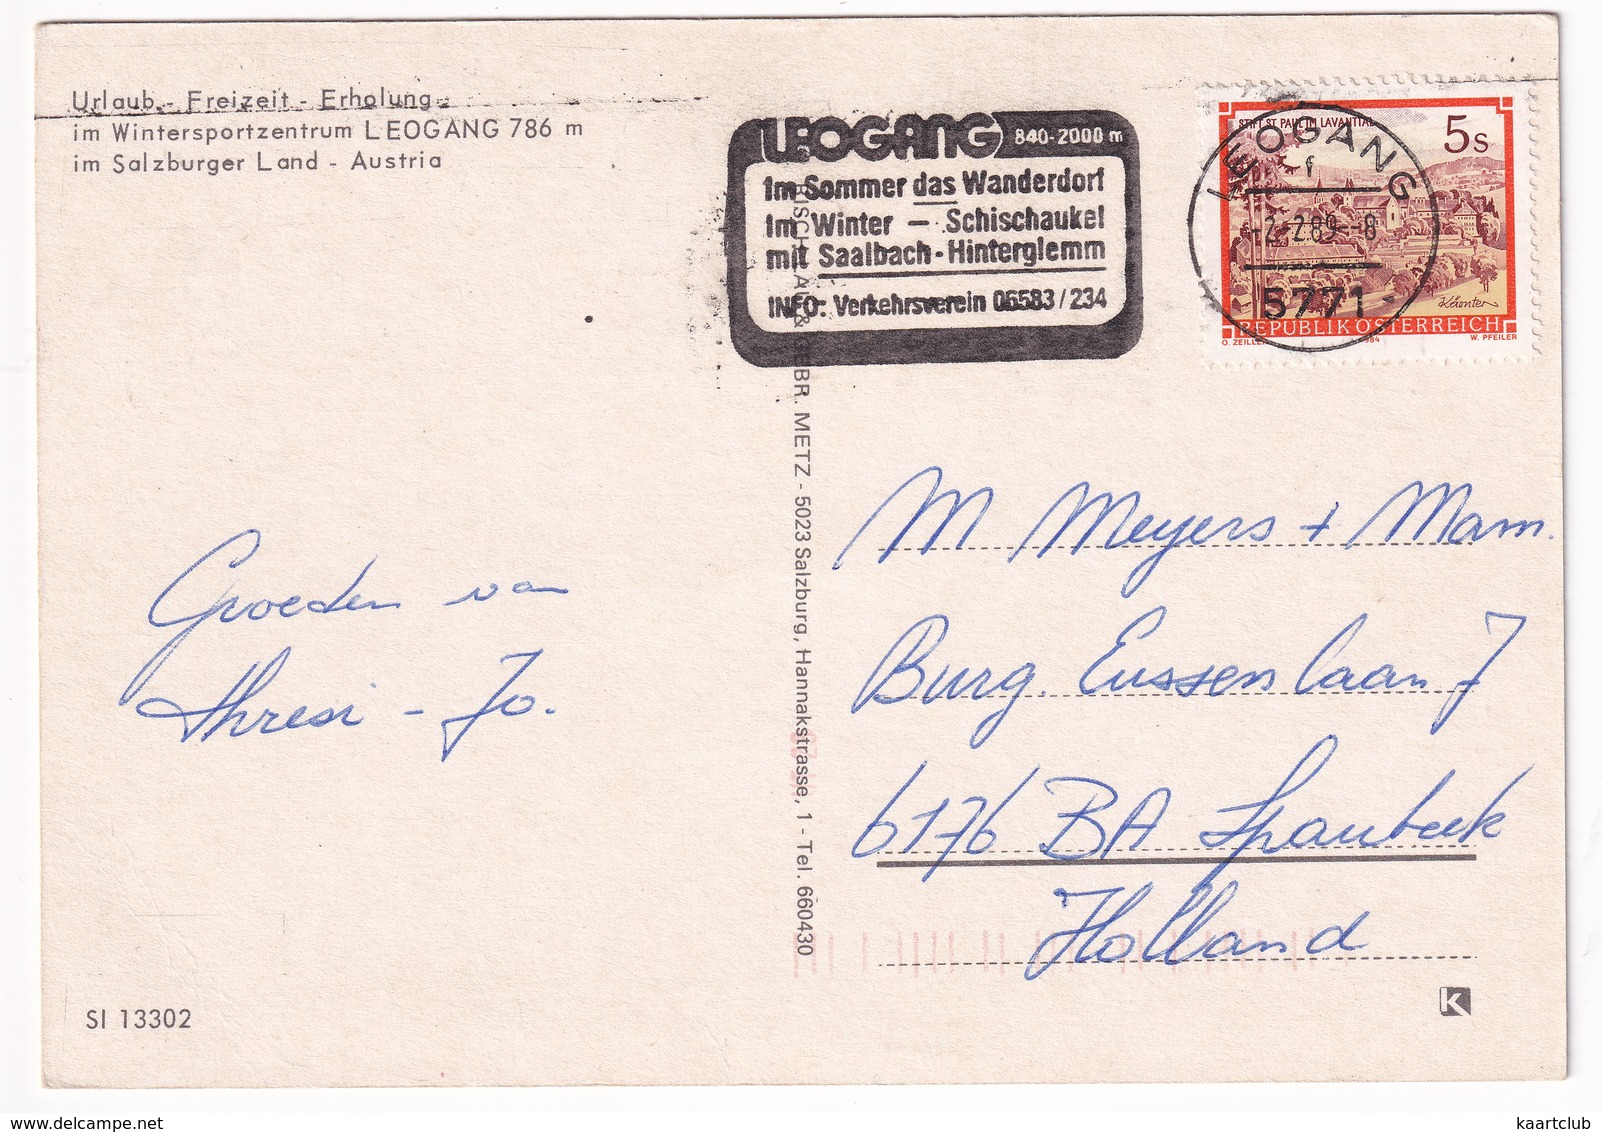 Urlaub - Freizeit - Erholung
im Wintersportzentrum LEOGANG 786 m
im Salzburger Land - Austria
LEOGANG 840-2000 m
Im Sommer das Wanderdorf
Im Winter - Schischaukel
mit Saalbach-Hinterglemm
INFO: Verkehrsverein 06583/234
STIFT ST. PAUL IM LAVANTTAL
5s
Kärnten
REPUBLIK ÖSTERREICH
O. ZEILLER 1984 W. PFEILER
LEOGANG
f
-2.-2.89--8
5771
GEBR. METZ - 5023 Salzburg, Hannakstrasse, 1 - Tel. 660430
Groeden van
Thresi - Jo.
M Meyers + Mam.
Burg. Eussenlaan 7
6176 BA Spaubeek
Holland
SI 13302
K
kaartclub